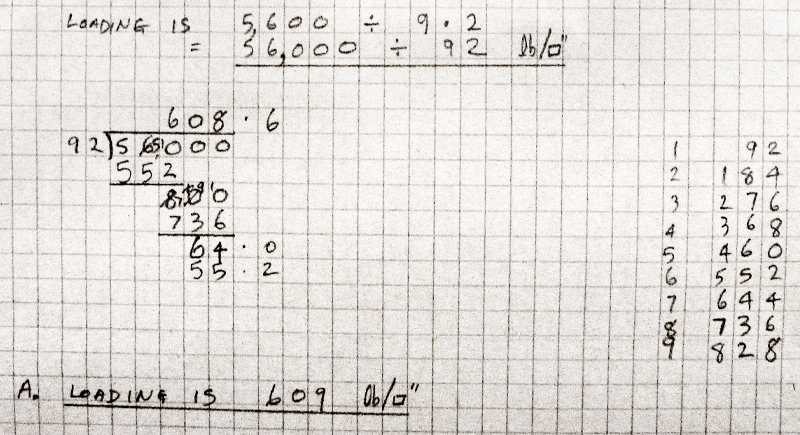 LOADING IS 5,600 ÷ 9.2
= 56,000 ÷ 92 lb/□"
608.6
92)56000
552
800
736
64.0
55.2
1 92
2 184
3 276
4 368
5 460
6 552
7 644
8 736
9 828
A. LOADING IS 609 lb/□"